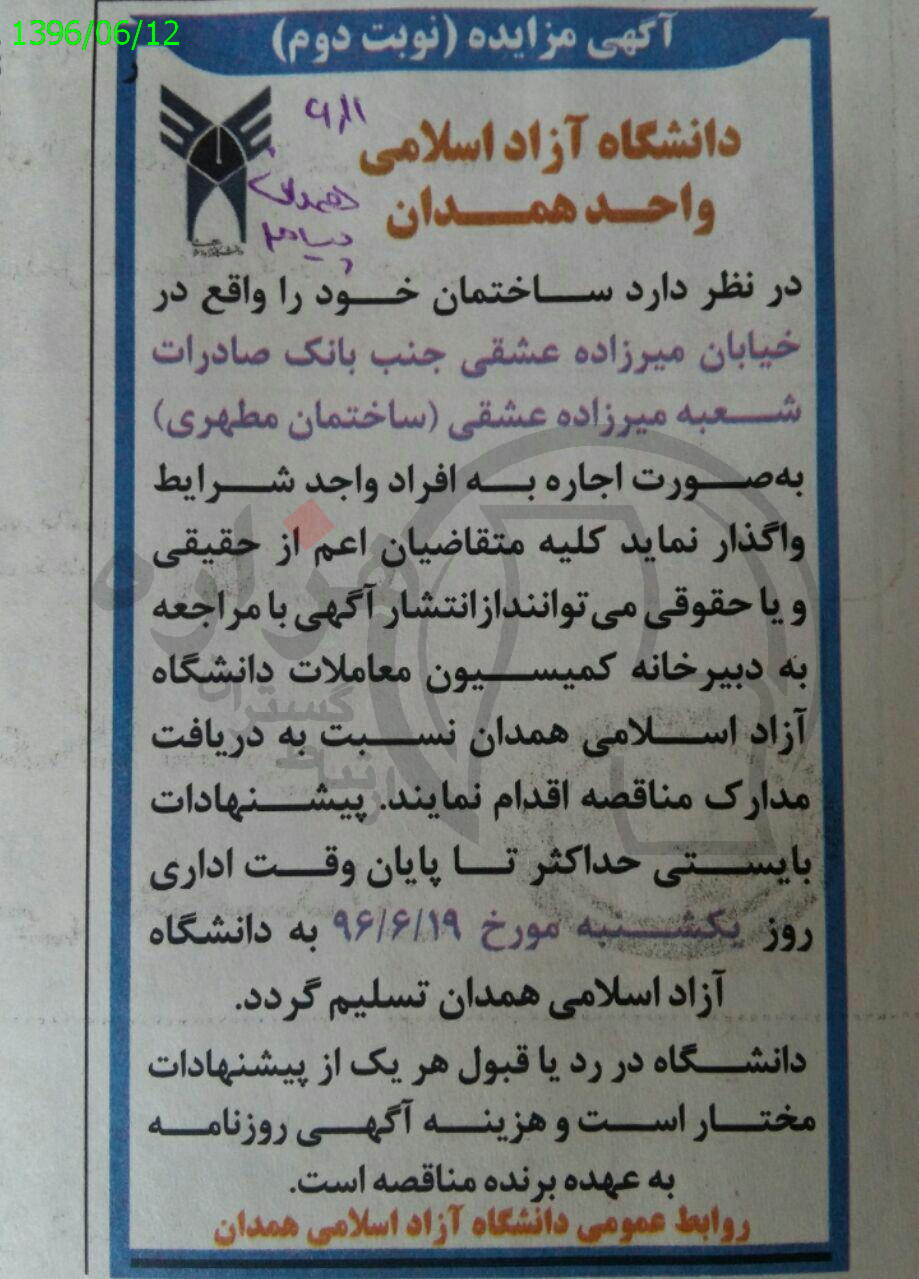 1396/06/12
آگهی مزایده (نوبت دوم)
دانشگاه آزاد اسلامی
واحد همدان
۶/۱۱
همدان
پیام
در نظر دارد ساختمان خود را واقع در
خیابان میرزاده عشقی جنب بانک صادرات
شعبه میرزاده عشقی (ساختمان مطهری)
به‌صورت اجاره به افراد واجد شرایط
واگذار نماید کلیه متقاضیان اعم از حقیقی
و یا حقوقی می‌توانند از انتشار آگهی با مراجعه
به دبیرخانه کمیسیون معاملات دانشگاه
آزاد اسلامی همدان نسبت به دریافت
مدارک مناقصه اقدام نمایند. پیشنهادات
بایستی حداکثر تا پایان وقت اداری
روز یکشنبه مورخ ۹۶/۶/۱۹ به دانشگاه
آزاد اسلامی همدان تسلیم گردد.
دانشگاه در رد یا قبول هر یک از پیشنهادات
مختار است و هزینه آگهی روزنامه
به عهده برنده مناقصه است.
روابط عمومی دانشگاه آزاد اسلامی همدان
هزاره
گستران